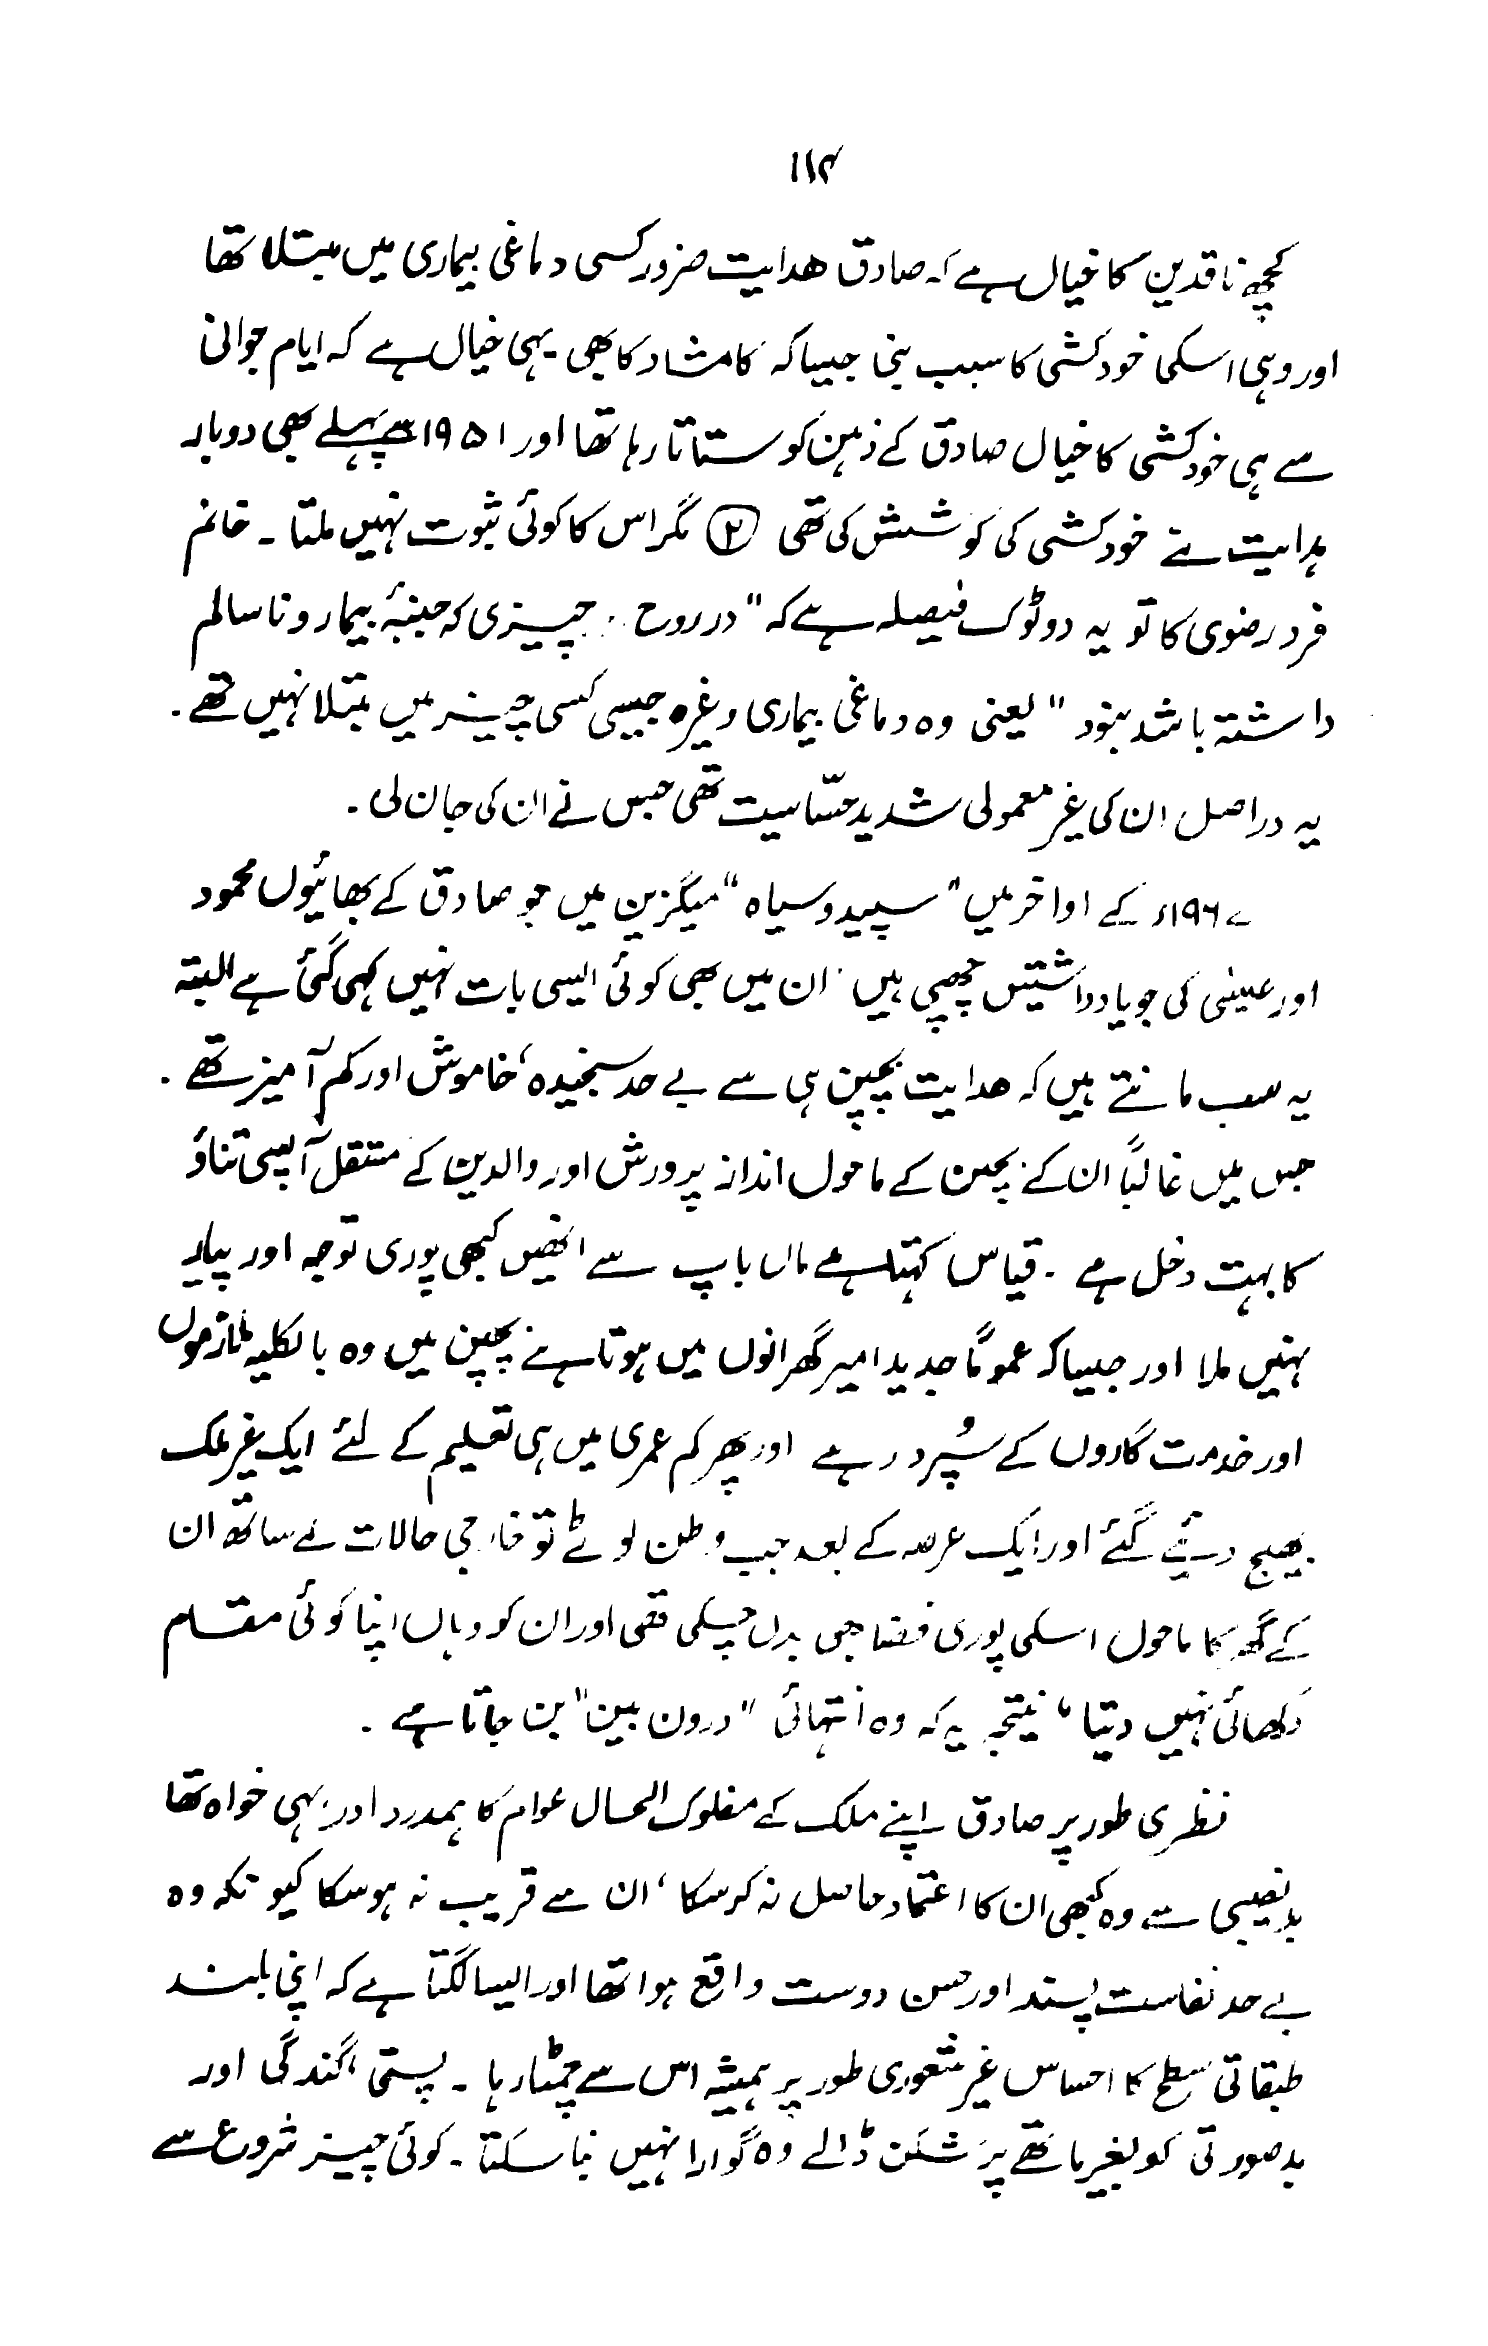 ۱۱۴
کچھ ناقدین کا خیال ہے کہ صادق ھدایت ضرور کسی دماغی بیماری میں مبتلا تھا
اور وہی اسکی خودکشی کا سبب بنی جیسا کہ کامشاد کا بھی یہی خیال ہے کہ ایام جوانی
سے ہی خودکشی کا خیال صادق کے ذہن کو ستاتا رہا تھا اور ۱۹۵۱ سے پہلے بھی دوبار
ہدایت نے خودکشی کی کوشش کی تھی (۲) مگر اس کا کوئی ثبوت نہیں ملتا ۔ خانم
فرد رضوی کا تو یہ دو ٹوک فیصلہ ہے کہ "در روح چیزی کہ جنبۂ بیمار و ناسالم
داشتہ باشد نبود" یعنی وہ دماغی بیماری وغیرہ جیسی کسی چیز میں مبتلا نہیں تھے ۔
یہ دراصل ان کی غیر معمولی شدید حسّاسیت تھی جس نے ان کی جان لی ۔
۱۹۶۷ء کے اواخر میں "سپید و سیاہ" میگزین میں جو صادق کے بھائیوں محمود
اور عیسٰی کی جو یادداشتیں چھپی ہیں ان میں بھی کوئی ایسی بات نہیں کہی گئی ہے البتہ
یہ سب مانتے ہیں کہ ھدایت بچپن ہی سے بے حد سنجیدہ، خاموش اور کم آمیز تھے ۔
جس میں غالباً ان کے بچپن کے ماحول انداز پرورش اور والدین کے مستقل آپسی تناؤ
کا بہت دخل ہے ۔ قیاس کہتا ہے ماں باپ سے انھیں کبھی پوری توجہ اور پیار
نہیں ملا اور جیسا کہ عموماً جدید امیر گھرانوں میں ہوتا ہے بچپن میں وہ بالکلیہ ملازموں
اور خدمت گاروں کے سُپرد رہے اور پھر کم عمری میں ہی تعلیم کے لئے ایک غیر ملک
بھیج دیئے گئے اور ایک عرصہ کے بعد جب وطن لوٹے تو خارجی حالات کے ساتھ ان
کے گھر کا ماحول اسکی پوری فضا بھی بدل چکی تھی اور ان کو وہاں اپنا کوئی مقام
دکھائی نہیں دیتا، نتیجہ یہ کہ وہ انتہائی "درون بین" بن جاتا ہے ۔
نظری طور پر صادق اپنے ملک کے مفلوک الحال عوام کا ہمدرد اور بہی خواہ تھا
بدنصیبی سے وہ کبھی ان کا اعتماد حاصل نہ کر سکا، ان سے قریب نہ ہو سکا کیونکہ وہ
بے حد نفاست پسند اور حسن دوست واقع ہوا تھا اور ایسا لگتا ہے کہ اپنی بلند
طبقاتی سطح کا احساس غیر شعوری طور پر ہمیشہ اس سے چمٹا رہا ۔ پستی، گندگی اور
بدصورتی کو بغیر ماتھے پر شکن ڈالے وہ گوارا نہیں بنا سکتا ۔ کوئی چیز شروع سے